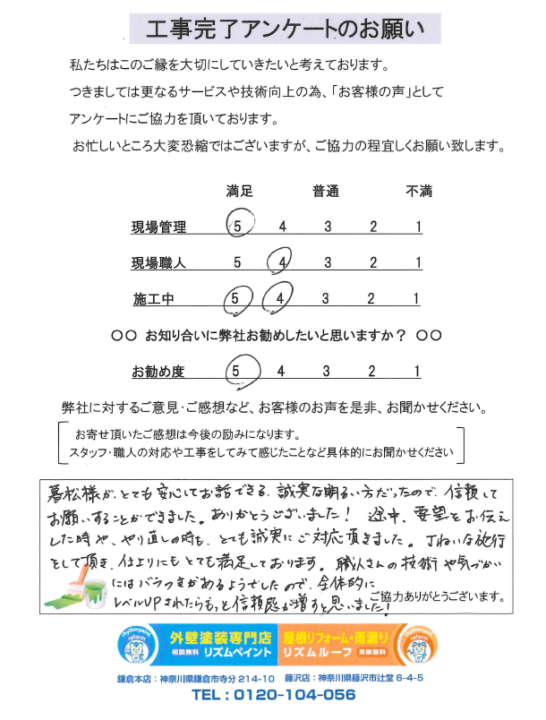 工事完了アンケートのお願い
私たちはこのご縁を大切にしていきたいと考えております。
つきましては更なるサービスや技術向上の為、「お客様の声」として
アンケートにご協力を頂いております。
お忙しいところ大変恐縮ではございますが、ご協力の程宜しくお願い致します。
満足 普通 不満
現場管理 5 4 3 2 1
現場職人 5 4 3 2 1
施工中 5 4 3 2 1
〇〇 お知り合いに弊社お勧めしたいと思いますか? 〇〇
お勧め度 5 4 3 2 1
弊社に対するご意見・ご感想など、お客様のお声を是非、お聞かせください。
お寄せ頂いたご感想は今後の励みになります。
スタッフ・職人の対応や工事をしてみて感じたことなど具体的にお聞かせください
様が、とても安心してお話できる、誠実な明るい方だったので、信頼して
お願いすることができました。ありがとうございました! 途中、要望をお伝え
した時や、やり直しの時も、とても誠実にご対応頂きました。丁ねいな施行
をして頂き、仕上りにもとても満足しております。職人さんの技術や気づかい
にはバラつきがあるようでしたので、全体的に
レベルUPされたらもっと信頼感が増すと思いました!
ご協力ありがとうございます。
rhythmpaint reform
外壁塗装専門店
相談無料 リズムペイント
屋根リフォーム・雨漏り
リズムルーフ 見積無料
reform
鎌倉本店:神奈川県鎌倉市寺分 214-10 藤沢店:神奈川県藤沢市辻堂 6-4-5
TEL:0120-104-056